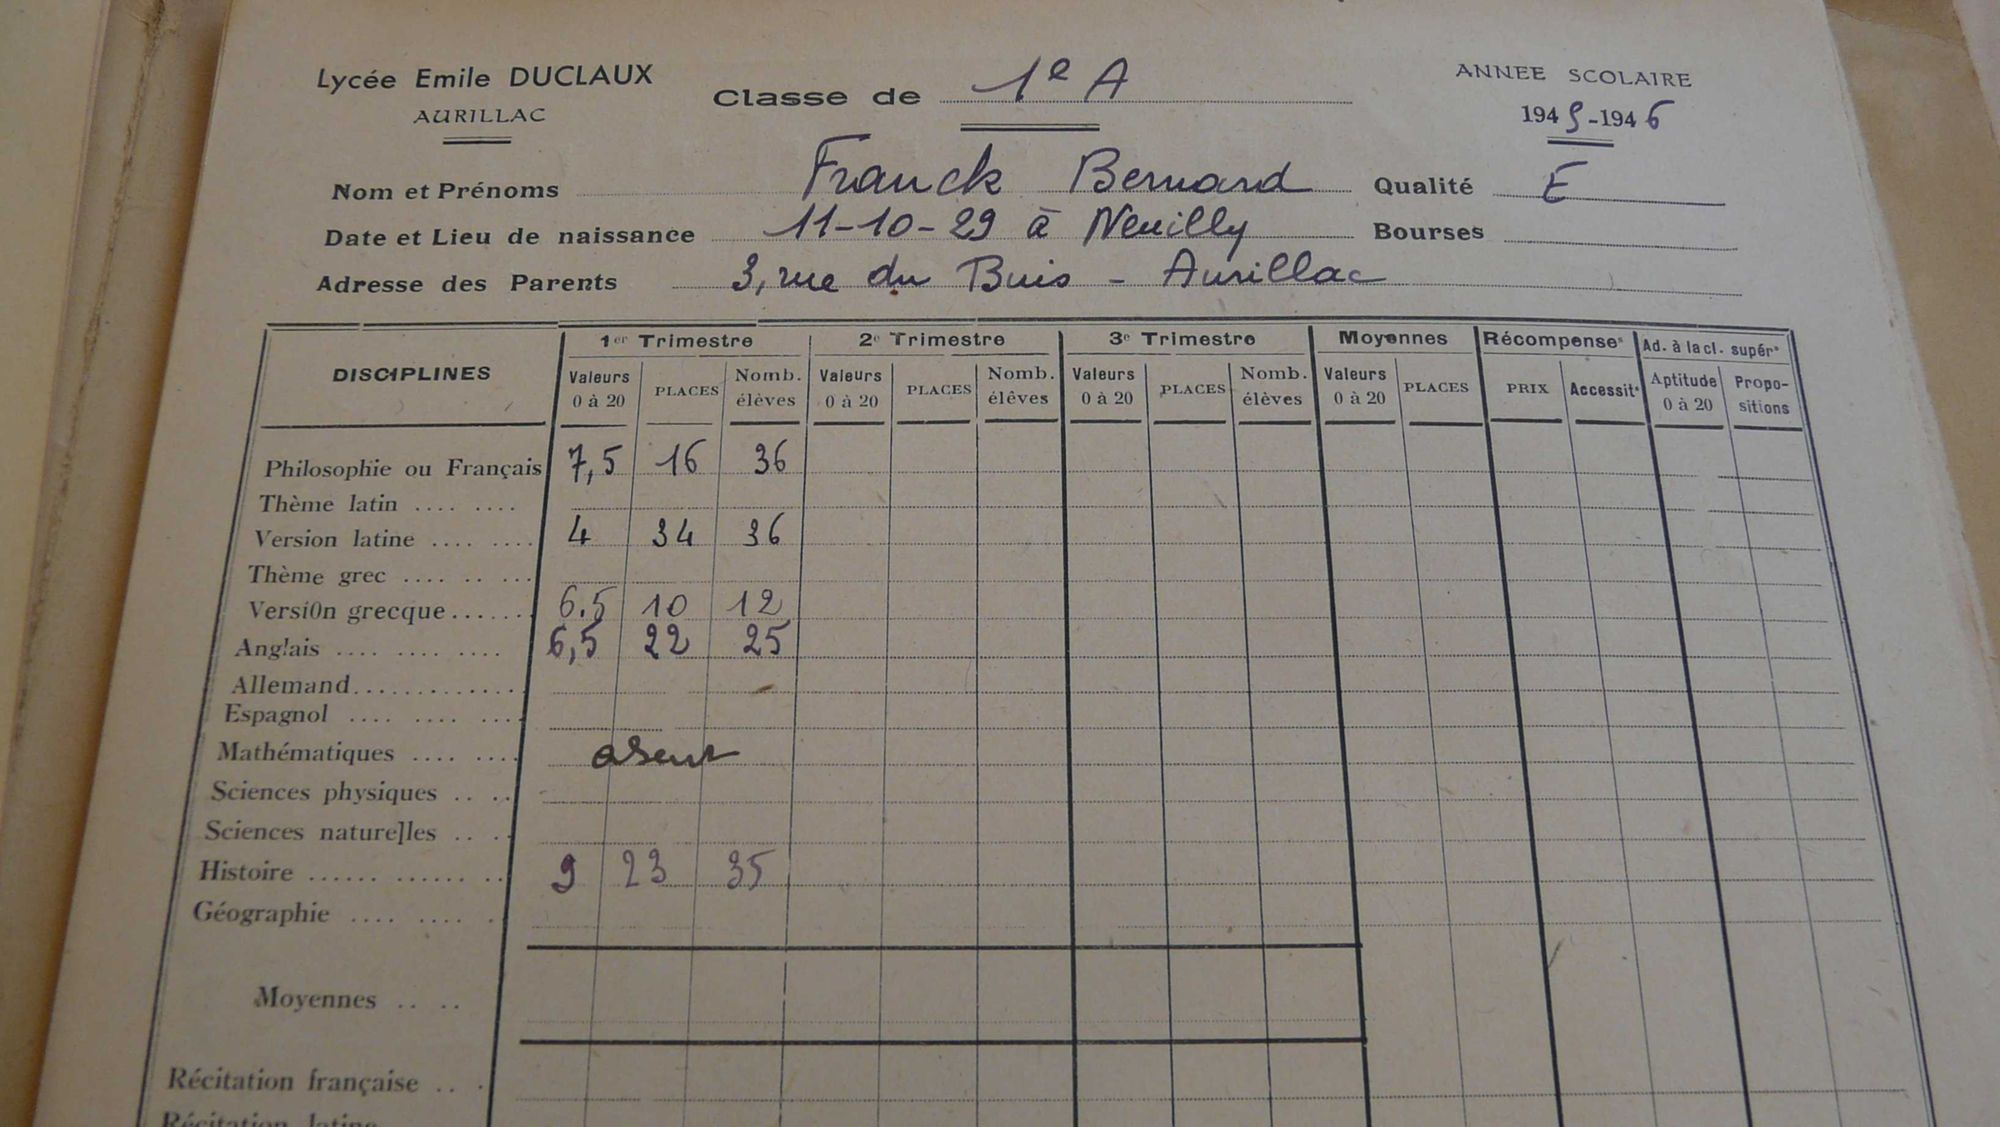 Lycée Emile DUCLAUX
AURILLAC
Classe de 1e A
ANNEE SCOLAIRE
1945-1946
Nom et Prénoms Franck Bernard Qualité E
Date et Lieu de naissance 11-10-29 à Neuilly Bourses
Adresse des Parents 3, rue du Buis - Aurillac
DISCIPLINES 1er Trimestre 2e Trimestre 3e Trimestre Moyennes Récompenses Ad. à la cl. supérs
Valeurs 0 à 20 PLACES Nomb. élèves Valeurs 0 à 20 PLACES Nomb. élèves Valeurs 0 à 20 PLACES Nomb. élèves Valeurs 0 à 20 PLACES PRIX Accessits Aptitude 0 à 20 Propo-sitions
Philosophie ou Français 7,5 16 36
Thème latin .... ....
Version latine .... .... 4 34 36
Thème grec .... .. ...
Versi0n grecque ...... 6.5 10 12
Anglais .... .... .... 6,5 22 25
Allemand.............
Espagnol .... .... ....
Mathématiques .... .... absent
Sciences physiques .. ..
Sciences naturelles .. ..
Histoire ...... ...... .. 9 23 35
Géographie .... .... .
Moyennes .. ..
Récitation française .. .
Récitation latine